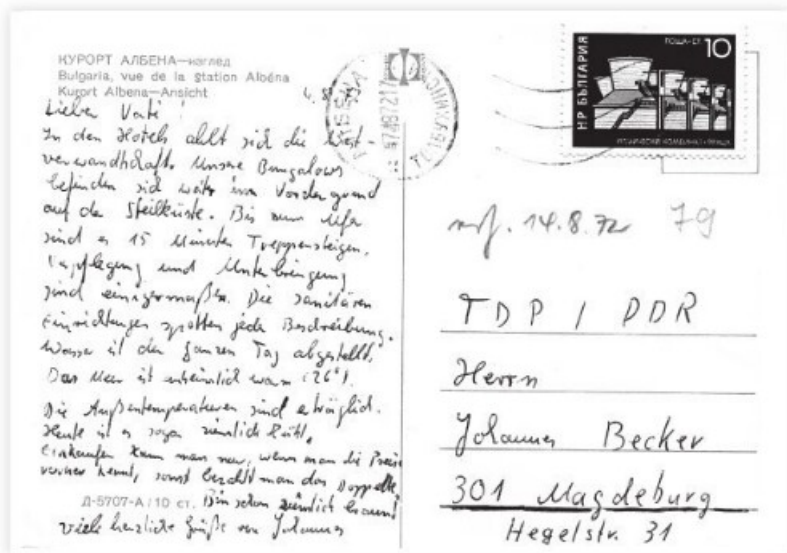 КУРОРТ АЛБЕНА—изглед
Bulgaria, vue de la station Albéna
Kurort Albena—Ansicht
Lieber Vati!
In den Hotels ahlt sich die West-
verwandtschaft. Unsere Bungalows
befinden sich weiter im Vordergrund
auf der Steilküste. Bis zum Ufer
sind es 15 Minuten Treppensteigen.
Verpflegung und Unterbringung
sind einigermaßen. Die sanitären
Einrichtungen spotten jeder Beschreibung.
Wasser ist den ganzen Tag abgestellt.
Das Meer ist unheimlich warm (26°).
Die Außentemperaturen sind erträglich.
Heute ist es sogar ziemlich kühl.
Einkaufen kann man nur, wenn man die Preise
vorher kennt, sonst bezahlt man das Doppelte.
Д-5707-А/10 ст. Bin schon ziemlich braun!
viele herzliche Grüße von Johannes
НР БЪЛГАРИЯ
ПОЩА-СТ 10
14.8.72 79
TDP / DDR
Herrn
Johannes Becker
301 Magdeburg
Hegelstr. 31